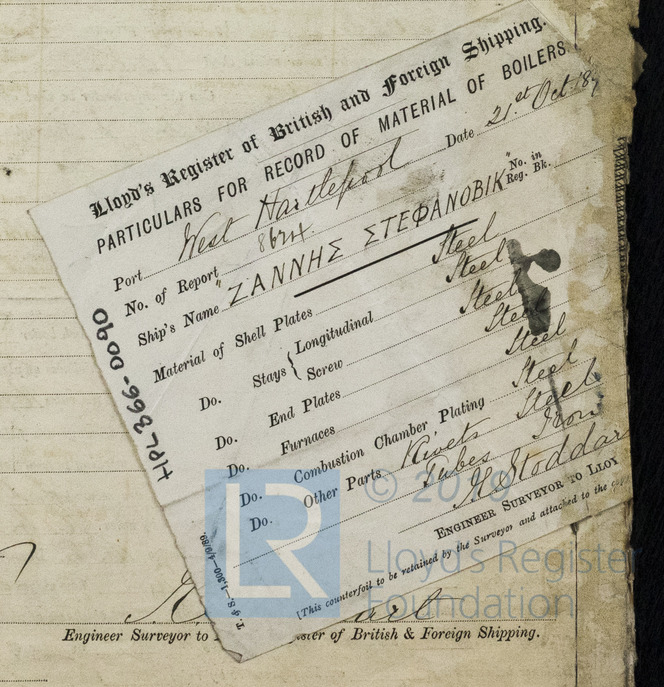 Lloyd's Register of British and Foreign Shipping.
PARTICULARS FOR RECORD OF MATERIAL OF BOILERS
Port West Hartlepool Date 21st Oct. 189
No. of Report
Ship's Name "ΖΑΝΝΗΣ ΣΤΕΦΑΝΟΒΙΚ" No. in Reg. Bk.
Material of Shell Plates Steel
Do. Stays { Longitudinal Steel
Screw Steel
Do. End Plates Steel
Do. Furnaces Steel
Do. Combustion Chamber Plating Steel
Do. Other Parts Rivets Steel
Tubes Iron
H. Stoddar
ENGINEER SURVEYOR TO LLOY
[This counterfoil to be retained by the Surveyor and attached to the
T. & S.—1,300—4/9/89.
HPL366-0090
LR © 2019
Lloyd's Register
Foundation
Engineer Surveyor to
gister of British & Foreign Shipping.